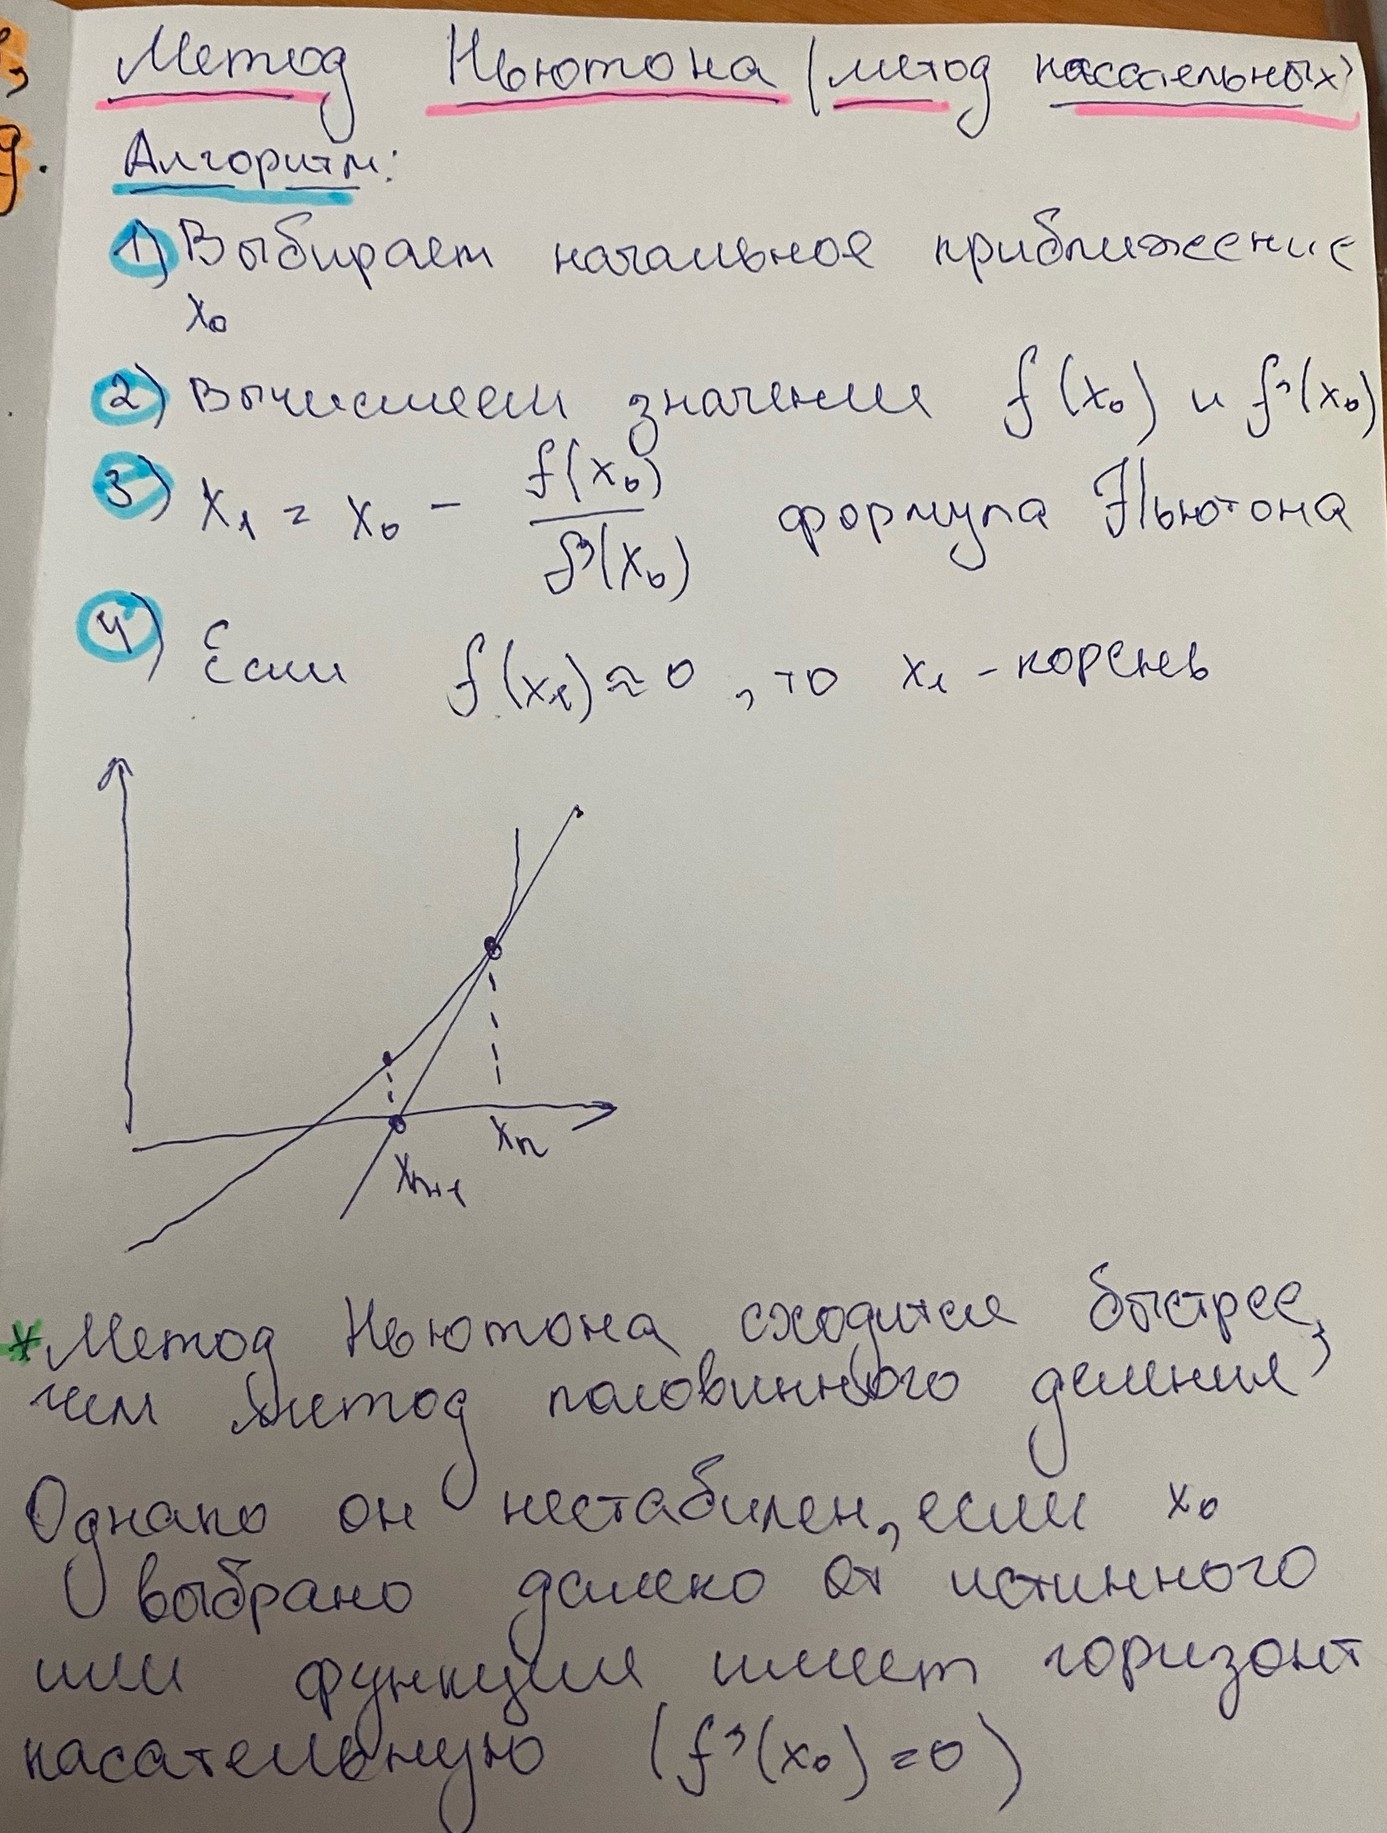 Метод Ньютона (метод касательных)
Алгоритм:
1) Выбираем начальное приближение
x₀
2) Вычисляем значения f(x₀) и f'(x₀)
3) x₁ = x₀ - f(x₀)/f'(x₀) формула Ньютона
4) Если f(x₁)≈0, то x₁ - корень
xₙ
xₙ₊₁
*Метод Ньютона сходится быстрее,
чем метод половинного деления
Однако он нестабилен, если x₀
выбрано далеко от истинного
или функция имеет горизонт
касательную (f'(x₀)=0)